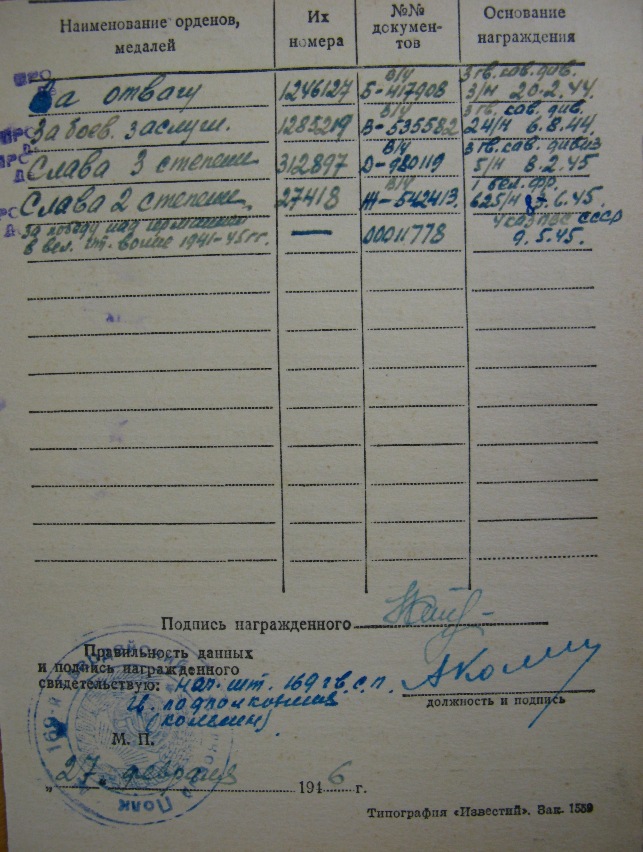 Наименование орденов, медалей
Их номера
№№ документов
Основание награждения
За отвагу 1246127 в/у Б-417908 3 гв. кав. див. 3/Н 20.2.44.
За боев. заслуги. 1285219 в/у В-535582 3 гв. кав. див. 24/Н 6.8.44.
Слава 3 степени 312897 в/у D-980119 3 гв. кав. дивиз 5/Н 8.2.45
Слава 2 степени, 27418 в/у Ж-542413. 1 бел. фр. 625/Н .6.45.
За победу над германией — 00011778 Указ ПВС СССР
в вел. от. войне 1941-45 гг. 9.5.45.
Подпись награжденного
Правильность данных
и подпись награжденного
свидетельствую: нач. шт. 169 гв. с.п.
гв. подполковник
должность и подпись
М. П.
„27. февраля 1946 г.
Типография «Известий». Зак. 1559